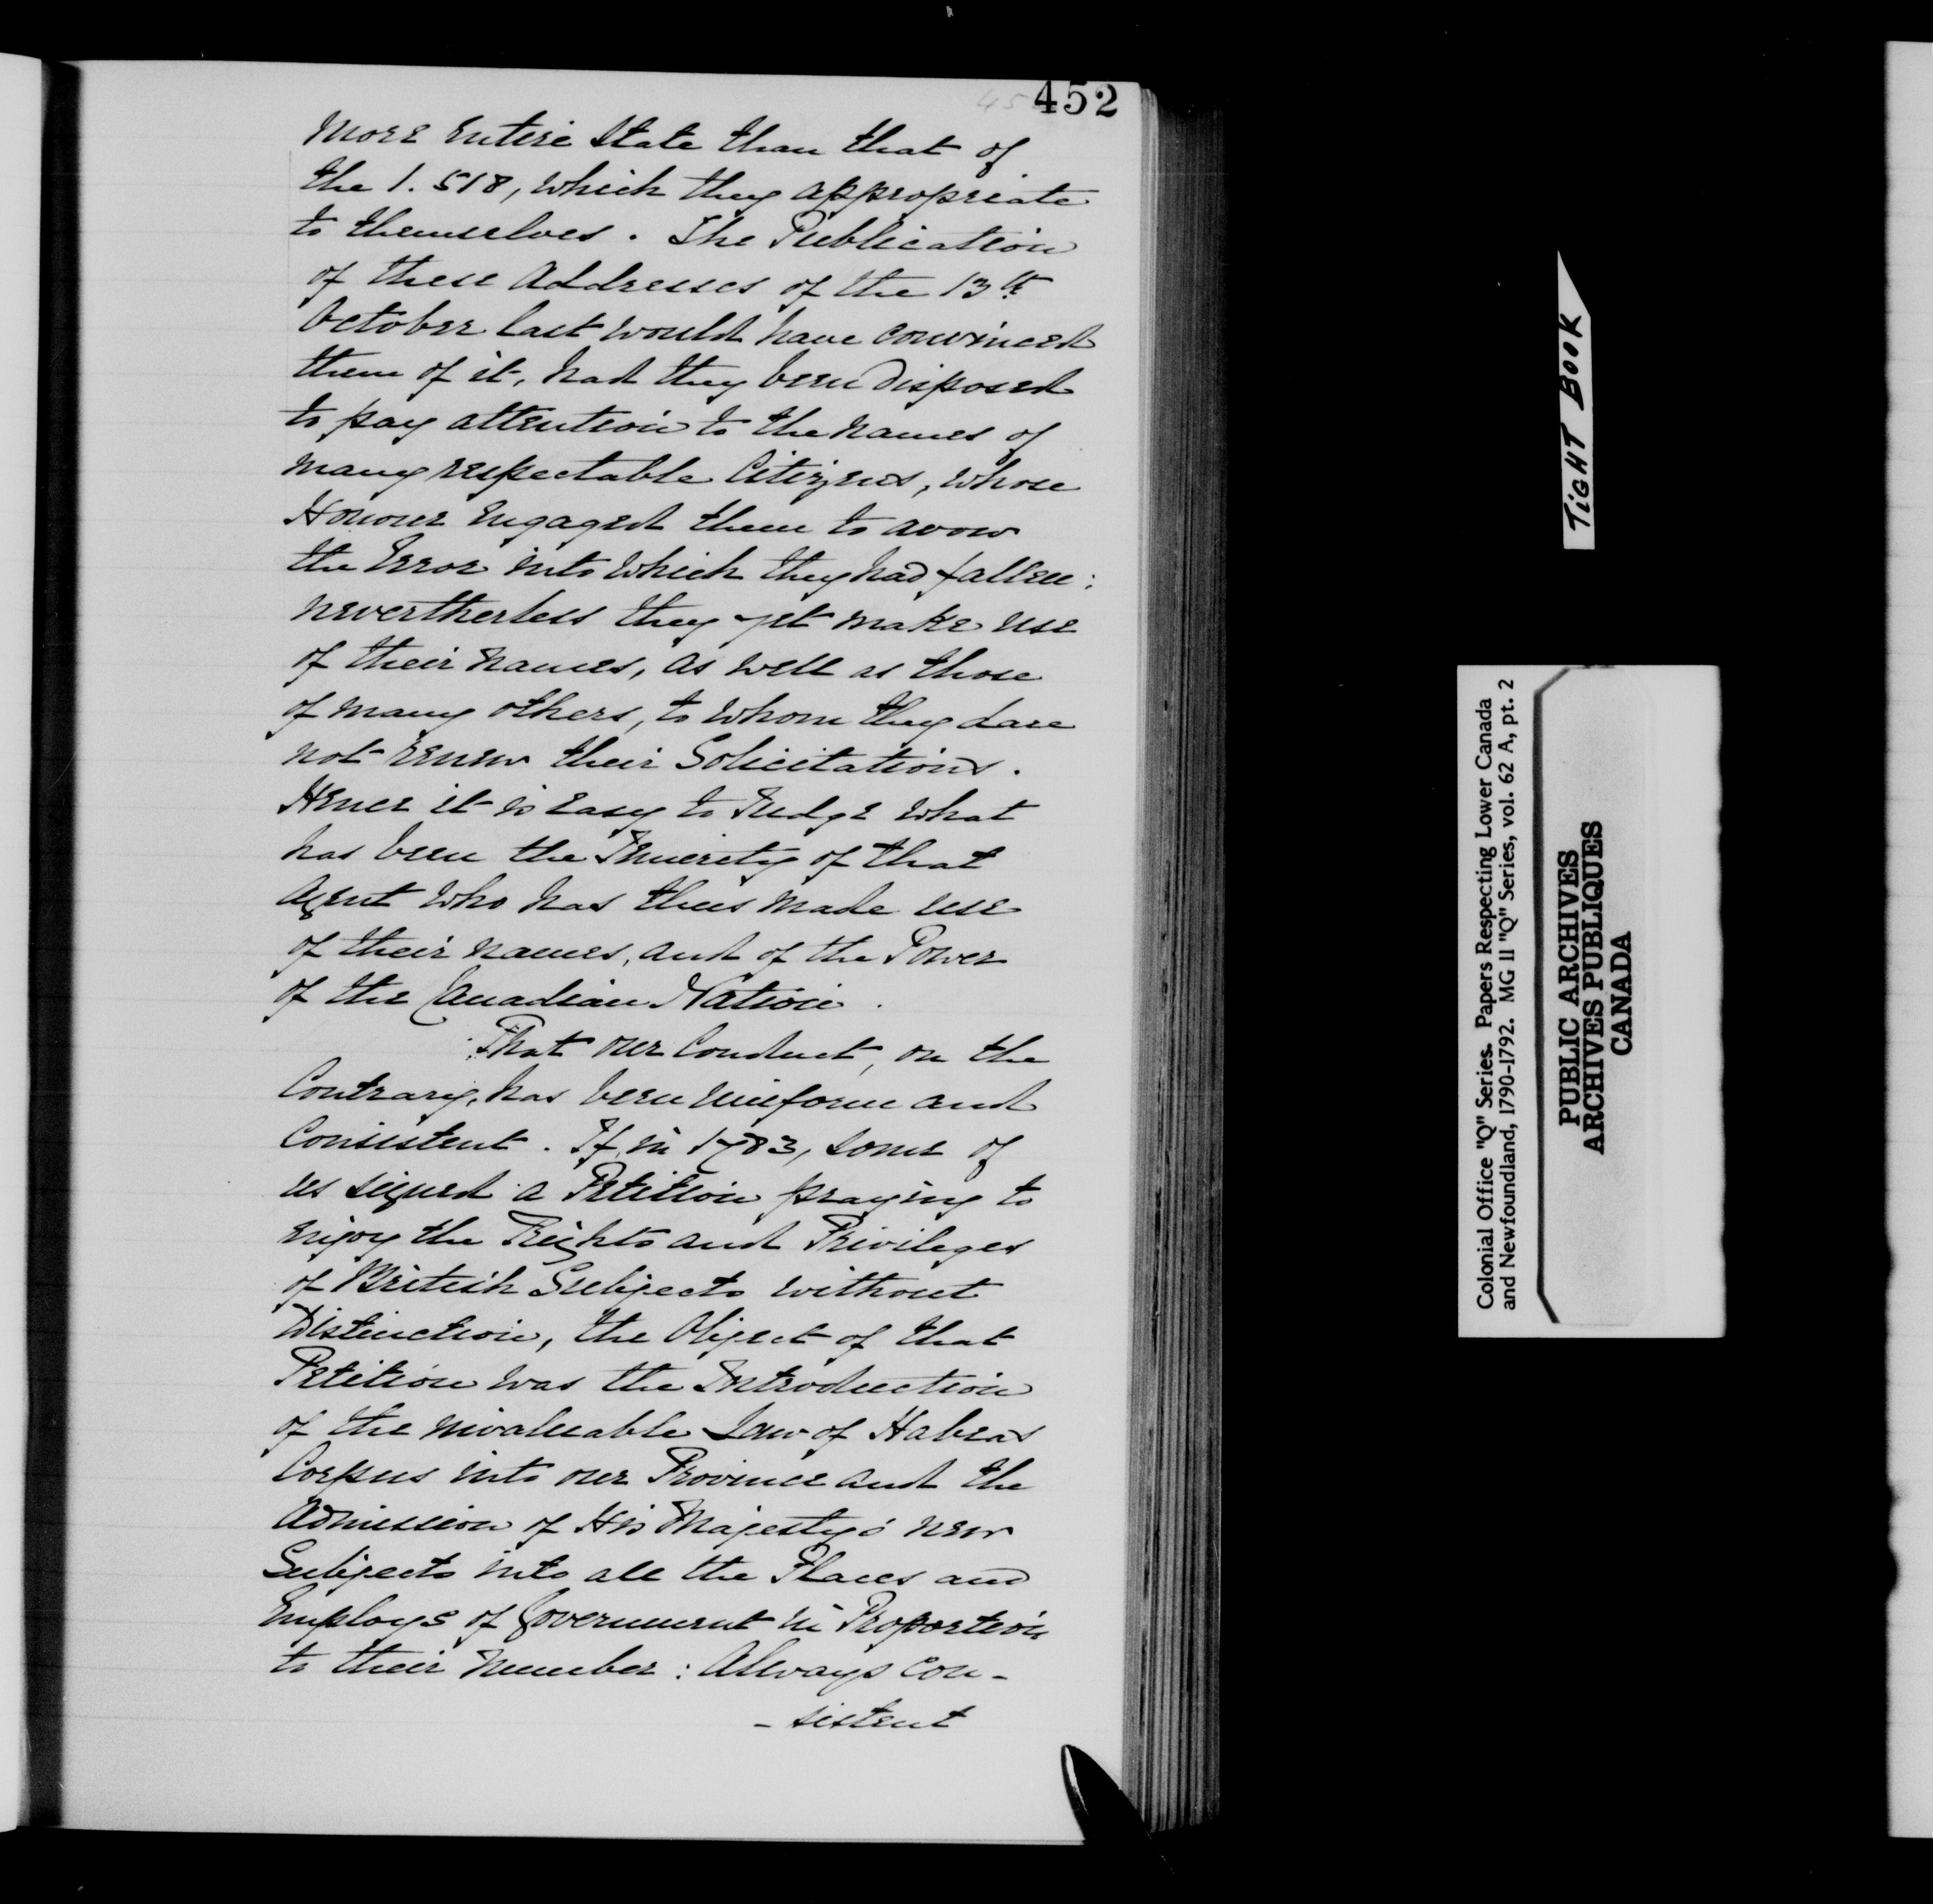 452
more entire State than that of
the 1.518, which they appropriate
to themselves. The Publication
of these Addresses of the 13th
October last would have convinced
them of it, had they been disposed
to pay attention to the names of
many respectable Citizens, whose
Honour engaged them to avow
the Error into which they had fallen:
nevertherless they yet make use
of their names, as well as those
of many others, to whom they dare
not renew their Solicitations.
Hence it is easy to Judge what
has been the Sincerity of that
Agent who has thus made use
of their names, and of the Power
of the Canadian Nation.
That our Conduct, on the
Contrary, has been uniform and
Consistent. If, in 1783, some of
us signed a Petition praying to
enjoy the Rights and Privileges
of British Subjects without
Distinction, the Object of that
Petition was the Introduction
of the invaluable Law of Habeas
Corpus into our Province and the
Admission of His Majesty's new
Subjects into all the Places and
Employs of Government in Proportion
to their number: Always con-
-sistent
TIGHT BOOK
Colonial Office "Q" Series. Papers Respecting Lower Canada
and Newfoundland, 1790-1792. MG 11 "Q" Series, vol. 62 A, pt. 2
PUBLIC ARCHIVES
ARCHIVES PUBLIQUES
CANADA